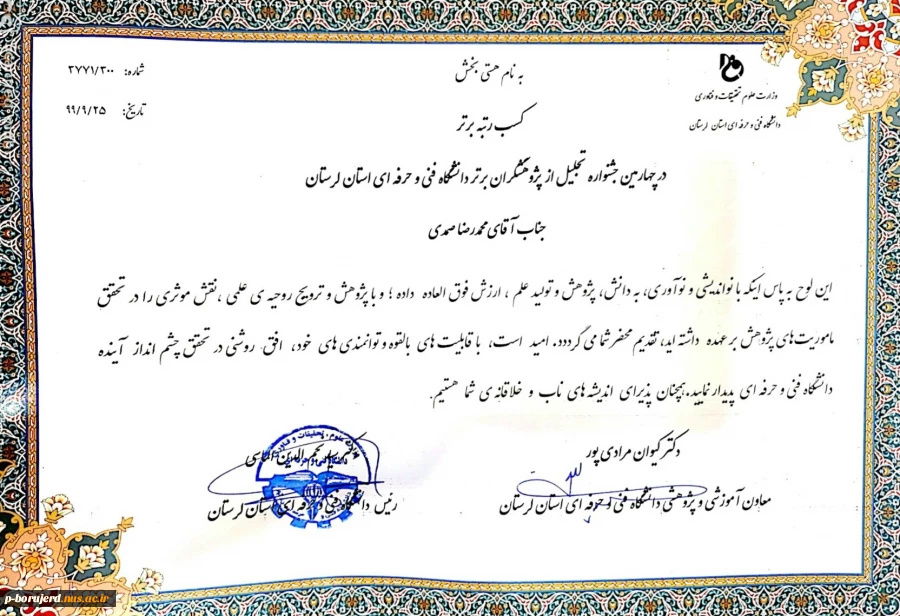 به نام هستی بخش
وزارت علوم تحقیقات و فناوری
دانشگاه فنی و حرفه ای استان لرستان
شماره: ۳۷۷۱/۳۰۰
تاریخ: ۹۹/۹/۲۵
کسب رتبه برتر
در چهارمین جشنواره تجلیل از پژوهشگران برتر دانشگاه فنی و حرفه ای استان لرستان
جناب آقای محمدرضا صمدی
این لوح به پاس اینکه با نواندیشی و نوآوری، به دانش، پژوهش و تولید علم ، ارزش فوق العاده داده ؛ و با پژوهش و ترویج روحیه ی علمی ، نقش موثری را در تحقق
ماموریت های پژوهش بر عهده داشته اید، تقدیم محضر شما می گردد. امید است، با قابلیت های بالقوه و توانمندی های خود، افق روشنی در تحقق چشم انداز آینده
دانشگاه فنی و حرفه ای پدیدار نمایید. همچنان پذیرای اندیشه های ناب و خلاقانه ی شما هستیم.
دکتر کیوان مرادی پور
معاون آموزشی و پژوهشی دانشگاه فنی و حرفه ای استان لرستان
دکتر سید نجم الدین الماسی
رئیس دانشگاه فنی و حرفه ای استان لرستان
p-borujerd.nus.ac.ir